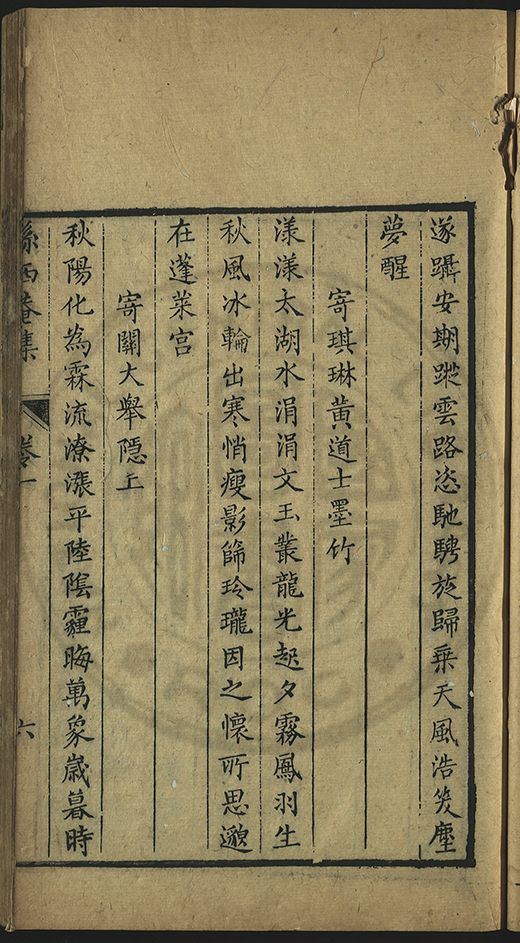 遂躡安期蹤雲路恣馳騁旋歸乗天風浩笑塵
夢醒
寄琪琳黄道士墨竹
漾漾太湖水涓涓文玉叢龍光起夕霧鳳羽生
秋風冰輪出寒悄瘦影篩玲瓏因之懷所思邈
在蓬萊宫
寄關大舉隱上
秋陽化為霖流潦漲平陸陰霾晦萬象嵗暮時
西菴集
卷一
六